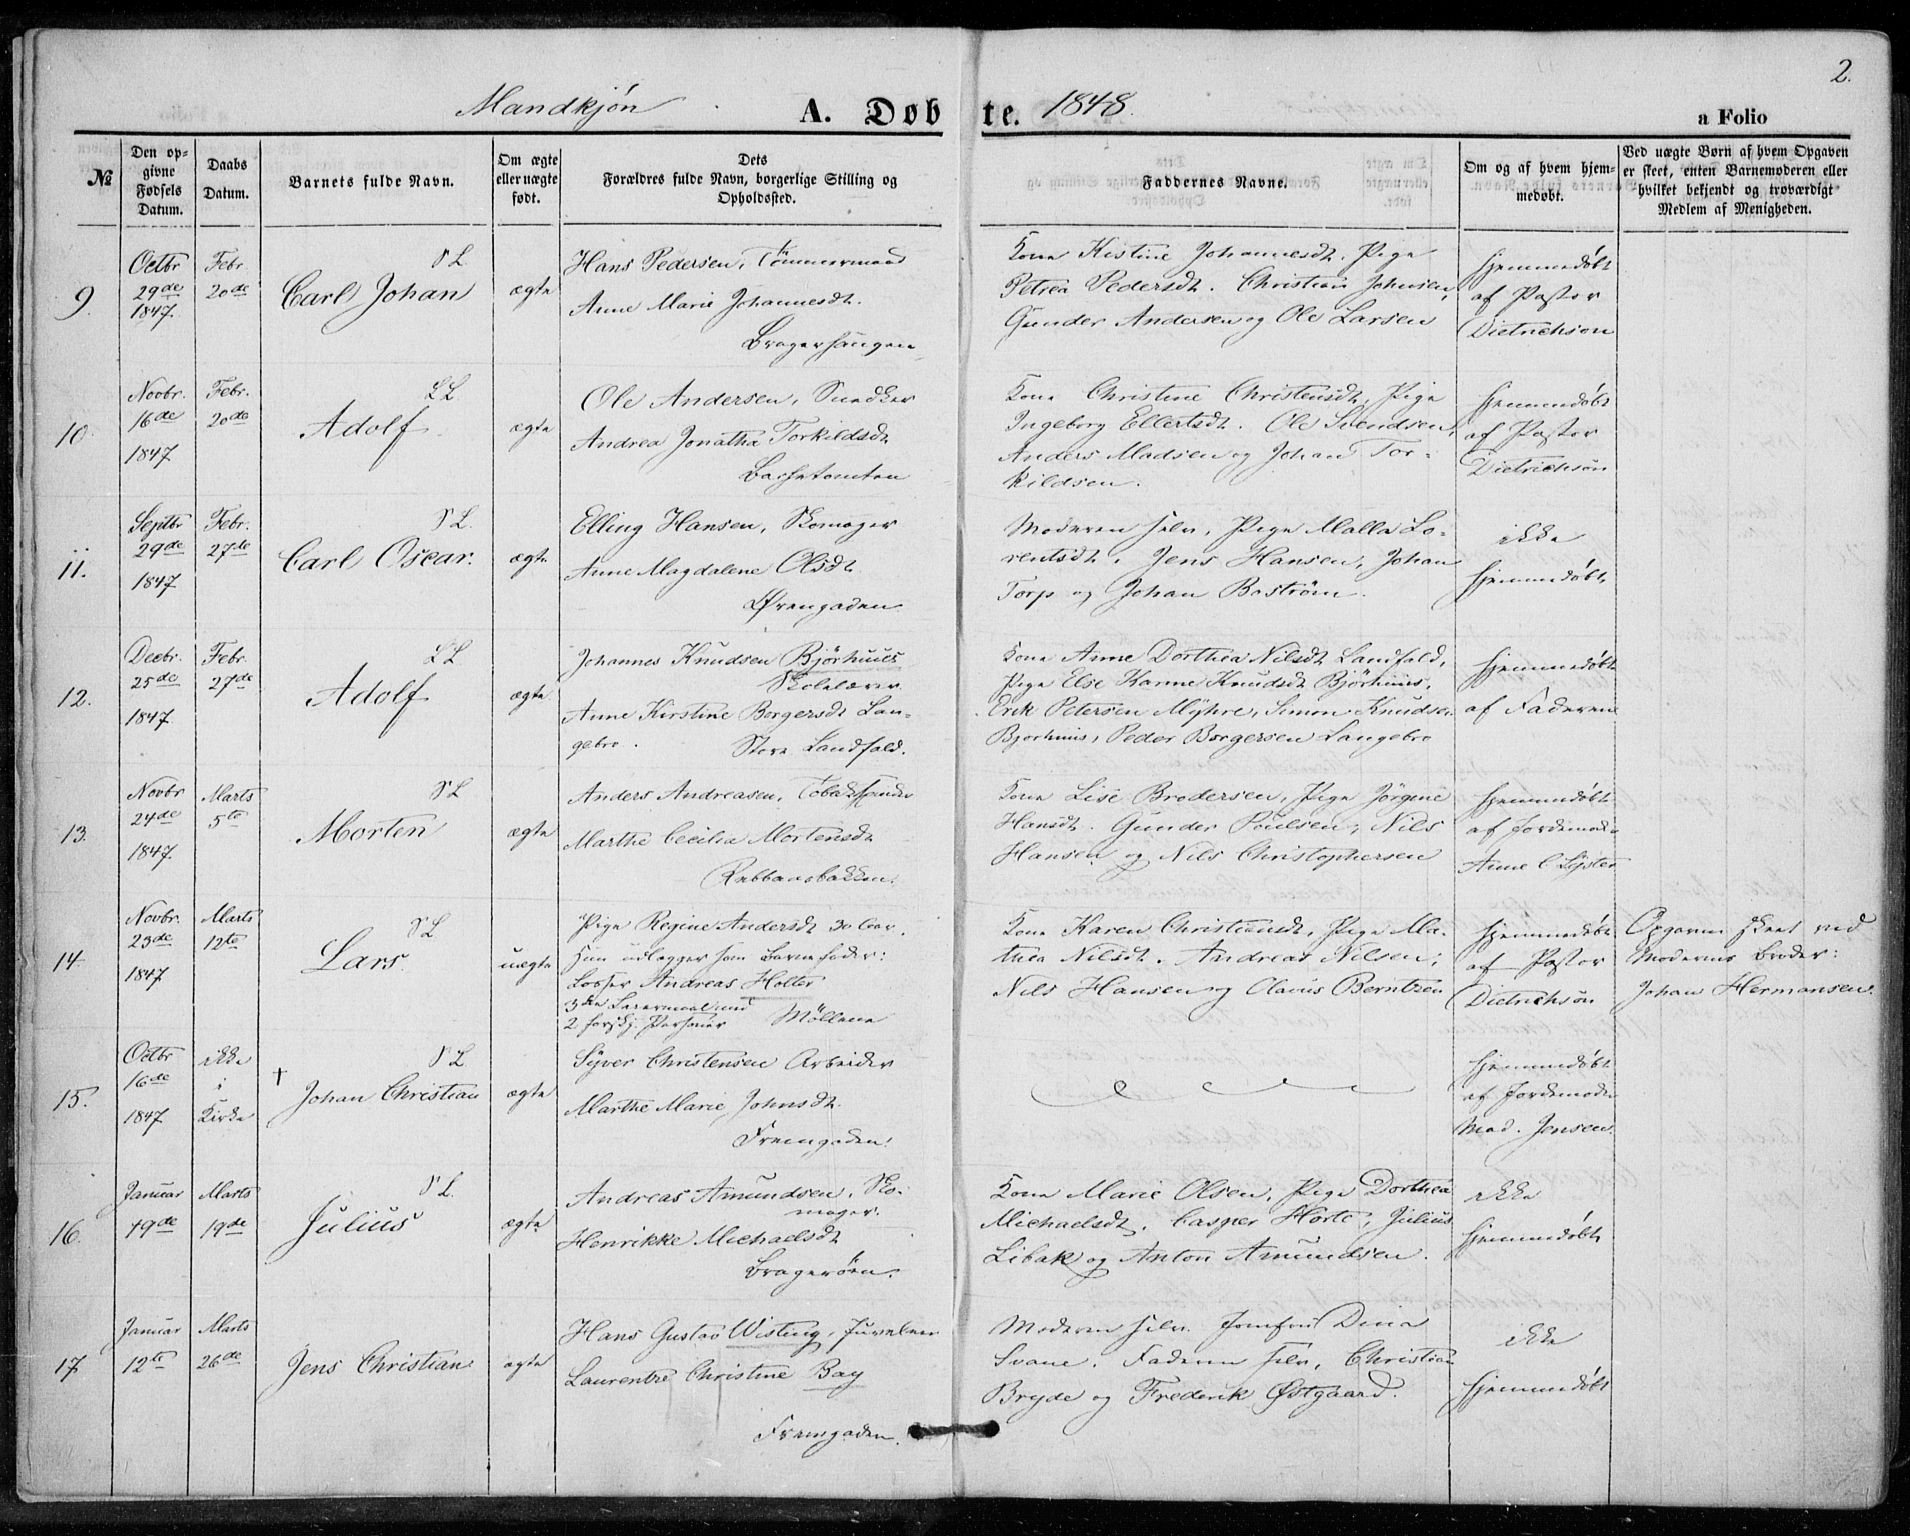 2.
Mandkjön A. Døbte. 1848. a Folio
№
Den opgivne Fødsels Datum.
Daabs Datum.
Barnets fulde Navn.
Om ægte eller uægte født.
Dets Forældres fulde Navn, borgerlige Stilling og Opholdssted.
Faddernes Navne.
Om og af hvem hjemmedøbt.
Ved uægte Børn af hvem Opgaven er skeet, enten Barnemoderen eller hvilket bekjendt og troværdigt Medlem af Menigheden.
9.
Octbr
29de
1847.
Febr.
20de
S L.
Carl Johan
ægte
Hans Pedersen, Tömmermand
Anne Marie Johannesdt.
Bragerhaugene
Kone Kistine Johannesdt. Pige
Petrea Pedersdt. Christian Johnsen,
Gunder Andersen og Ole Larsen
hjemmedøbt
af Pastor
Dietrichson
10.
Novbr.
16de
1847
Febr.
20de
L L
Adolf
ægte
Ole Andersen, Snedker
Andrea Jonatha Torkildsdt
Bachetomten
Kone Christine Christensdt, Pige
Ingeborg Ellertsdt. Ole Svendsen,
Anders Madsen og Johan Tor-
kildsen.
hjemmedøbt
af Pastor
Dietrichson
11.
Septbr
29de
1847
Febr.
27de
S L.
Carl Oscar.
ægte
Elling Hansen, Skomager
Anne Magdalene Olsdt
Øvengaden
Moderen selv, Pige Malla Lo-
rentsdt, Jens Hansen, Johan
Torp og Johan Boström.
ikke
hjemmedøbt
12.
Decbr.
25de
1847
Febr
27de
L L
Adolf
ægte
Johannes Knudsen Björhuus
Skolelærer
Anne Kirstine Borgersdt Lan-
gebro. Store Landfald.
Kone Anne Dorthea Nilsdt Landfald,
Pige Else Karine Knudsdt Björhuus,
Erik Petersen Myhre, Simon Knudsen
Bjorhuus, Peder Borgersen Langebro
hjemmedøbt
af Faderen
13.
Novbr
24de
1847.
Marts
5te
S L
Morten
ægte
Anders Andreasen, Tobakspinder
Marthe Cecilia Mortensdt
Rebbansbakken.
Kone Lise Brodersen, Pige Jörgine
Hansdt. Gunder Poulsen, Nils
Hansen og Nils Christophersen
hjemmedøbt
af Jordemoder
Anne C Lyster
14.
Novbr.
23de
1847
Marts
12te
S L
Lars
uægte
Pige Regine Andersdt 30 Aar.
Hun udlægger som Barnefader:
Losser Andreas Holter
3die Leiermaal med
2 forskj. Personer Möllene
Kone Karen Christiansdt, Pige Ma-
thea Nilsdt. Andreas Nilsen,
Nils Hansen og Olavus Berntsen
hjemmedøbt
af Pastor
Dietrichson
Opgaven skeet ved
Moderens Broder:
Johan Hermansen.
15.
Octbr
16de
1847
ikke
i
Kirke
S L
† Johan Christian
ægte
Syver Christensen Arbeider
Marthe Marie Johnsdt.
Fremgaden.
hjemmedøbt
af Jordemoder
Mad. Jensen.
16.
Januar
19de
Marts
19de
S L.
Julius
ægte
Andreas Amundsen, Sko-
mager.
Henrikke Michaelsdt
Bragerøen.
Kone Marie Olsen, Pige Dorthea
Michaelsdt, Casper Horte, Julius
Libak og Anton Amundsen.
ikke
hjemmedøbt
17.
Januar
12te
Marts
26de
Jens Christian
ægte
Hans Gustav Wisting, Juveleer
Laurentze Christine Bay
Fremgaden.
Moderen selv. Jomfru Dina
Svane. Faderen selv, Christian
Bryde og Frederik Østgaard.
ikke
hjemmedøbt